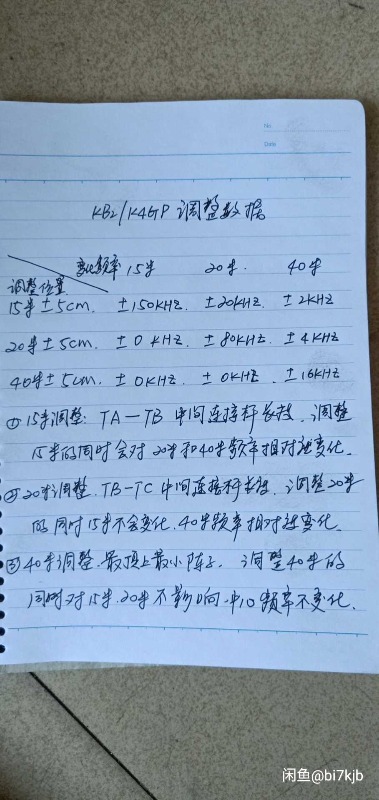 No.
Date
KB2/K4GP 调整数据
变化频率 15米 20米 40米
调整位置
15米±5cm. ±150KHZ. ±20KHZ. ±2KHZ
20米±5cm. ±0KHZ. ±80KHZ. ±4KHZ
40米±5cm. ±0KHZ. ±0KHZ. ±16KHZ
①15米调整: TA—TB 中间连接杆长短. 调整
15米的同时会对20米和40米频率相对被变化.
②20米调整. TB-TC 中间连接杆长短. 调整20米
的同时15米不会变化. 40米频率相对被变化.
③40米调整. 最顶上最小阵子. 调整40米的
同时对15米. 20米不影响. 中心频率不变化.
闲鱼@bi7kjb